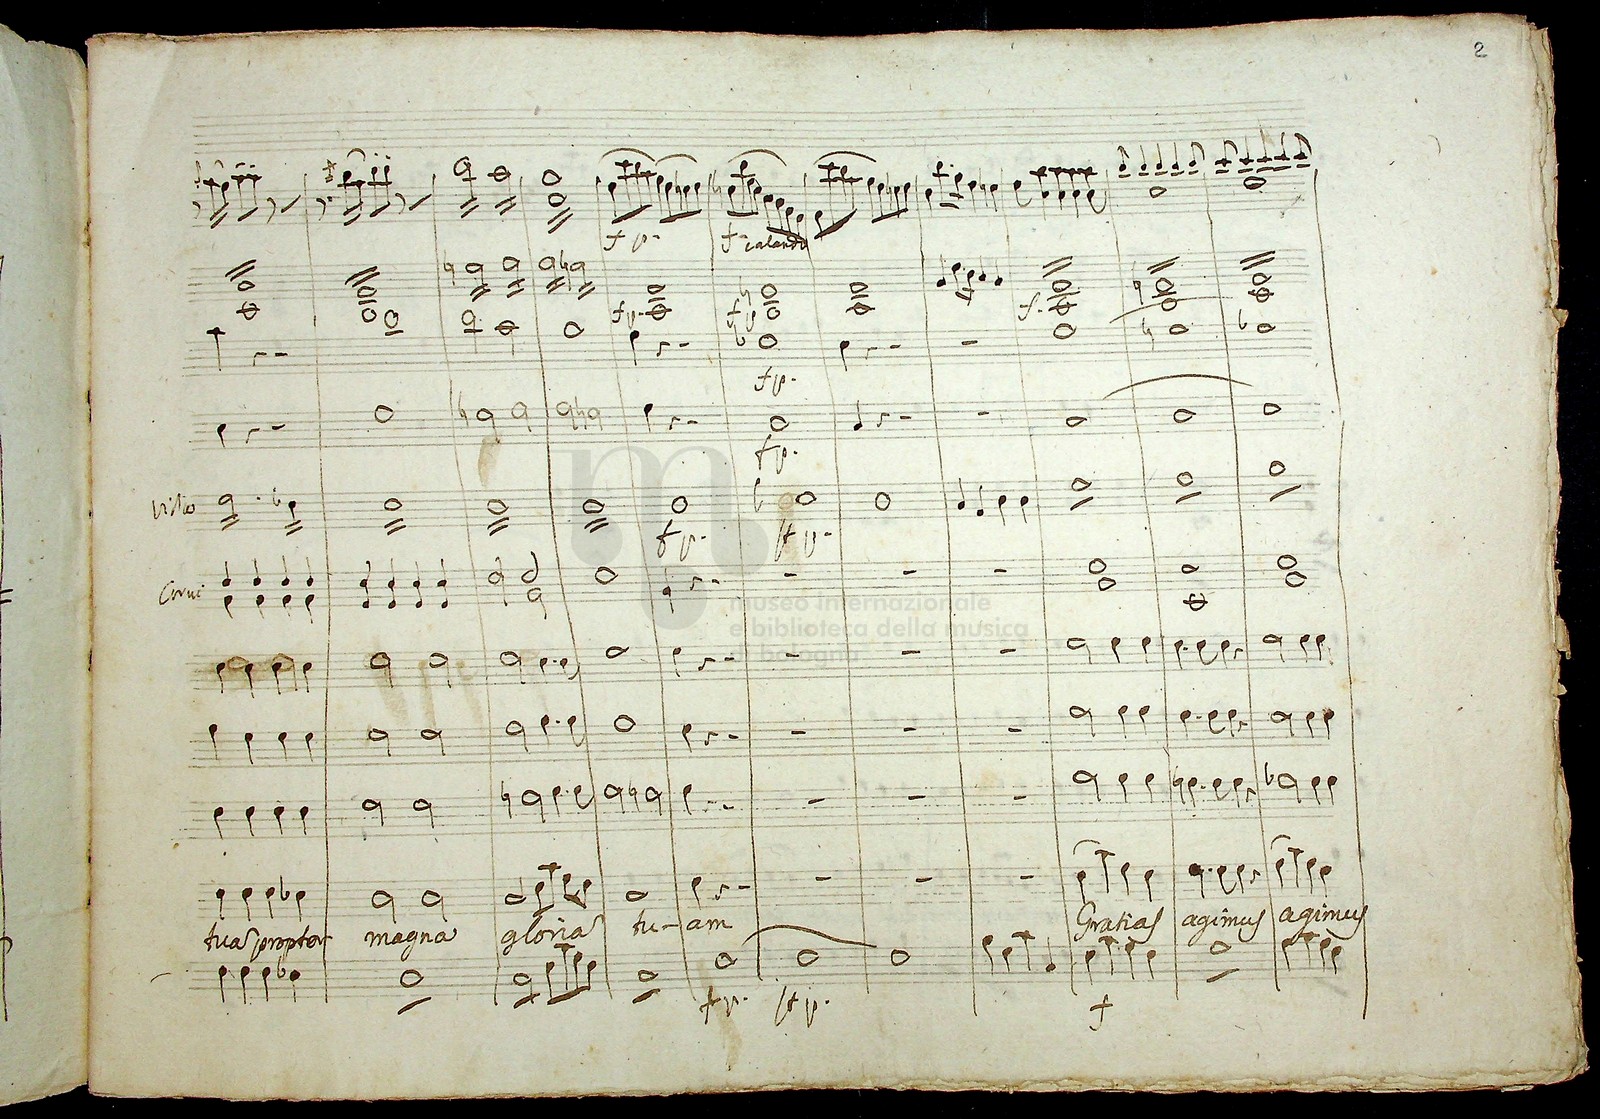 2
f p.
f calando
f p.
f p
f.
f p.
f p.
f p.
f p.
Corni
museo internazionale
e biblioteca della musica
di bologna
tuam propter magna gloria tu-am Gratias agimus agimus
f p.
f p.
f